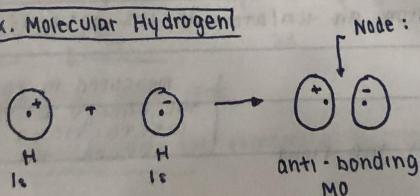 x. Molecular Hydrogen
Node :
+ + - + -
H H
1s 1s
anti-bonding
MO